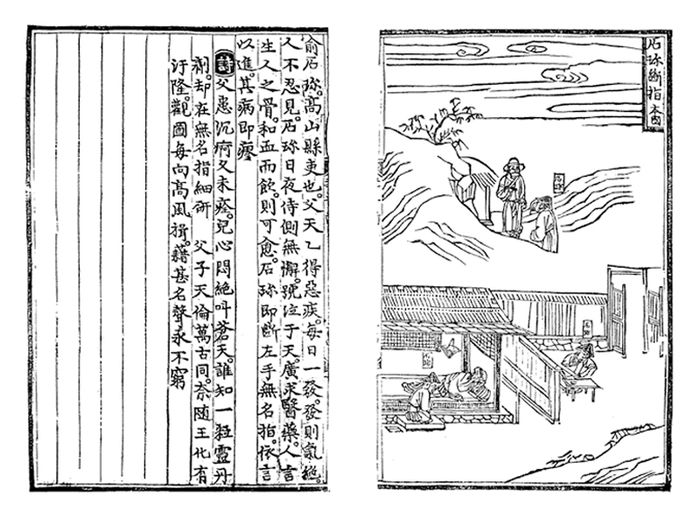 石珎斷指
俞石珎。高山縣吏也。父天乙得惡疾。每日一發。發則氣絶。
人不忍見。石珎日夜侍側無懈。號泣于天。廣求醫藥。人言
生人之骨。和血而飮。則可愈。石珎即斷左手無名指。依言
以進。其病即瘳
詩父患沉痾久未痊。兒心悶絶叫蒼天。誰知一粒靈丹
劑。却在無名指細硏 父子天倫萬古同。柰随王化有
汙隆。觀圖每向高風揖。藉甚名聲永不窮